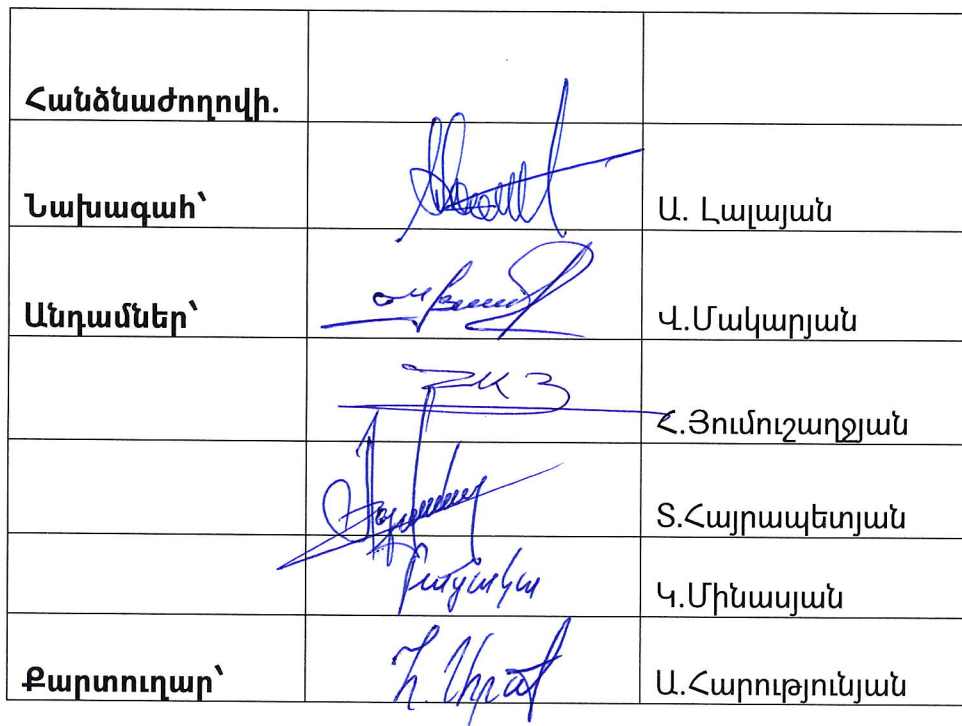 Հանձնաժողովի.
Նախագահ՝ Ա. Լալայան
Անդամներ՝ Վ.Մակարյան
Հ.Յումուշաղջյան
Տ.Հայրապետյան
Կ.Մինասյան
Քարտուղար՝ Ա.Հարությունյան